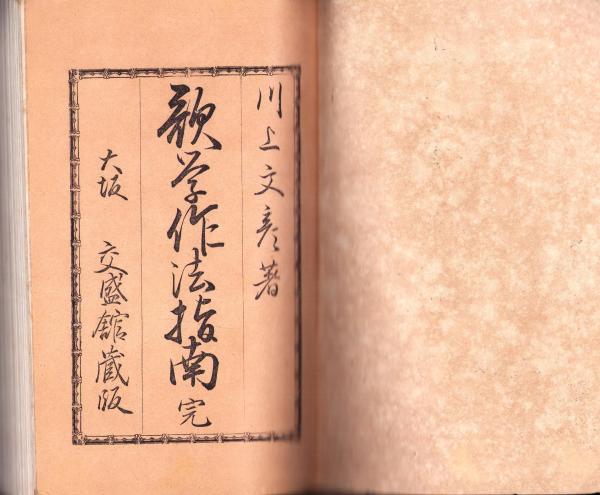 川上文彦著
歌学作法指南 完
大坂 交盛館蔵版